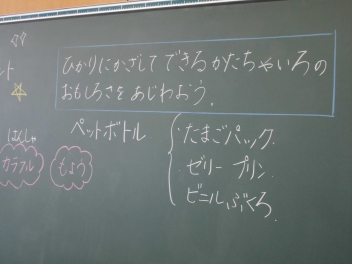 ひかりにかざして できるかたちゃいろの
おもしろさを あじわおう。
ント
ペットボトル
たまごパック.
ゼリー プリン
ビニルぶくろ
はんしゃ
カラフル
もよう